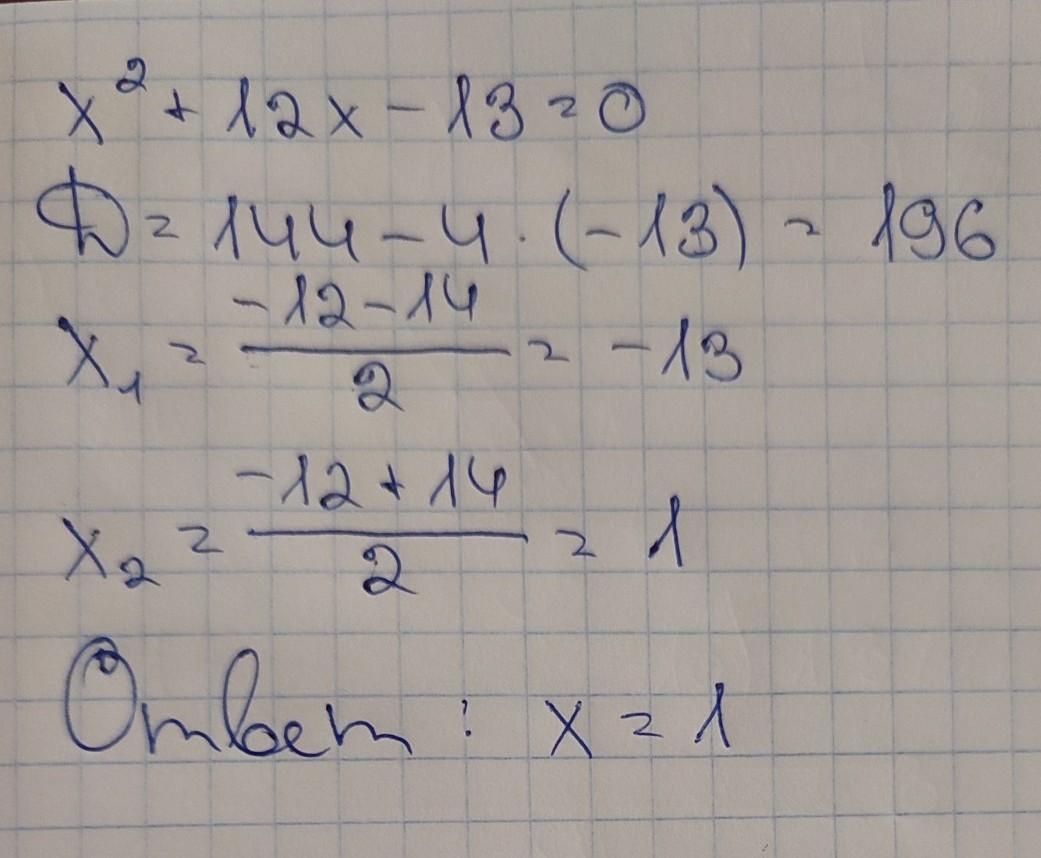 x² + 12x - 13 = 0
D = 144 - 4 · (-13) = 196
x₁ = (-12 - 14)/2 = -13
x₂ = (-12 + 14)/2 = 1
Ответ : x = 1